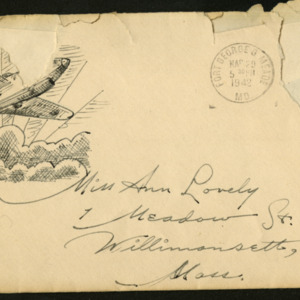 FORT GEORGE G. MEADE
MAR 29
5 PM
1942
MD.
Miss Ann Lovely
7 Meadow St.
Willimansett,
Mass.